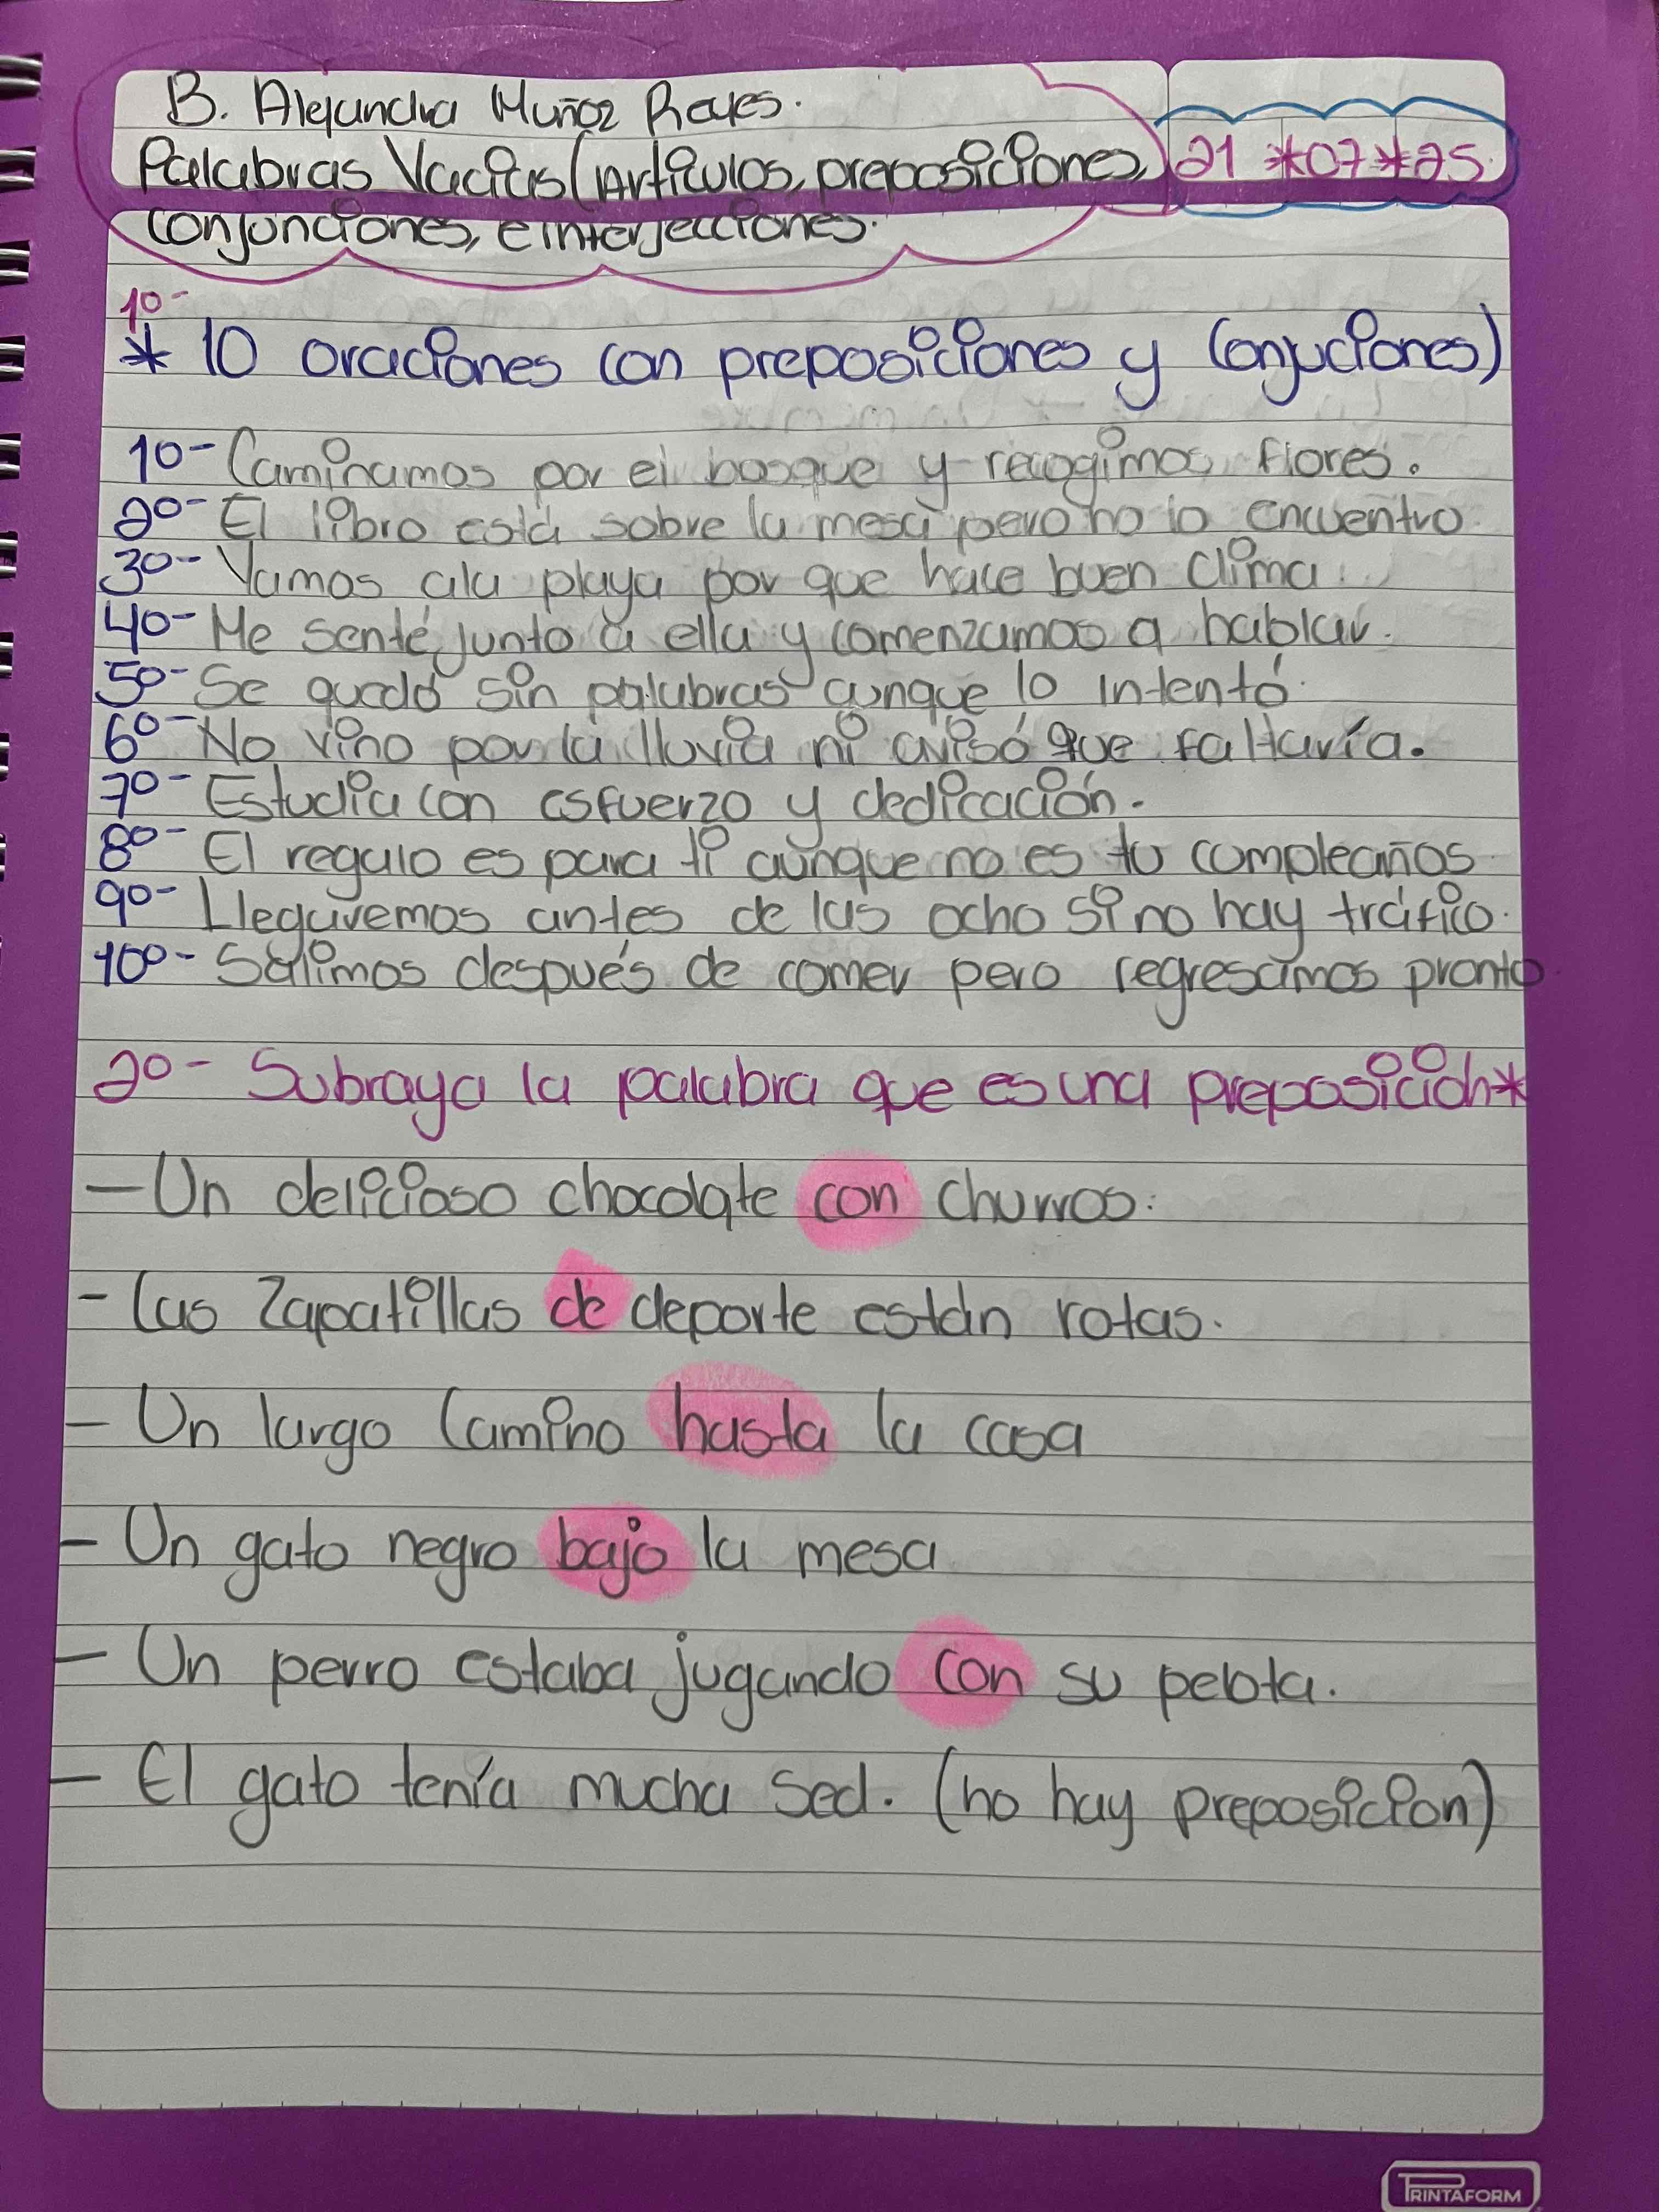 B. Alejandra Muñoz Reyes.
Palabras Vacías (Artículos, preposiciones, 21 *07*25.
conjunciones, e interjecciones.
1º-
* 10 oraciones con preposiciones y conjuciones)
1º- Caminamos por el bosque y recogimos flores.
2º- El libro está sobre la mesa pero no lo encuentro.
3º- Vamos ala playa por que hace buen clima.
4º- Me senté junto a ella y comenzamos a hablar.
5º- Se quedó sin palabras aunque lo intentó.
6º- No vino por la lluvia ni avisó que faltaría.
7º- Estudia con esfuerzo y dedicación.
8º- El regalo es para ti aunque no es tu compleaños
9º- Llegaremos antes de las ocho si no hay tráfico.
10º- Salimos después de comer pero regresamos pronto.
2º- Subraya la palabra que es una preposición*
- Un delicioso chocolate con churros.
- Las zapatillas de deporte están rotas.
- Un largo camino hasta la casa
- Un gato negro bajo la mesa
- Un perro estaba jugando con su pelota.
- El gato tenía mucha sed. (no hay preposicion)
PRINTAFORM